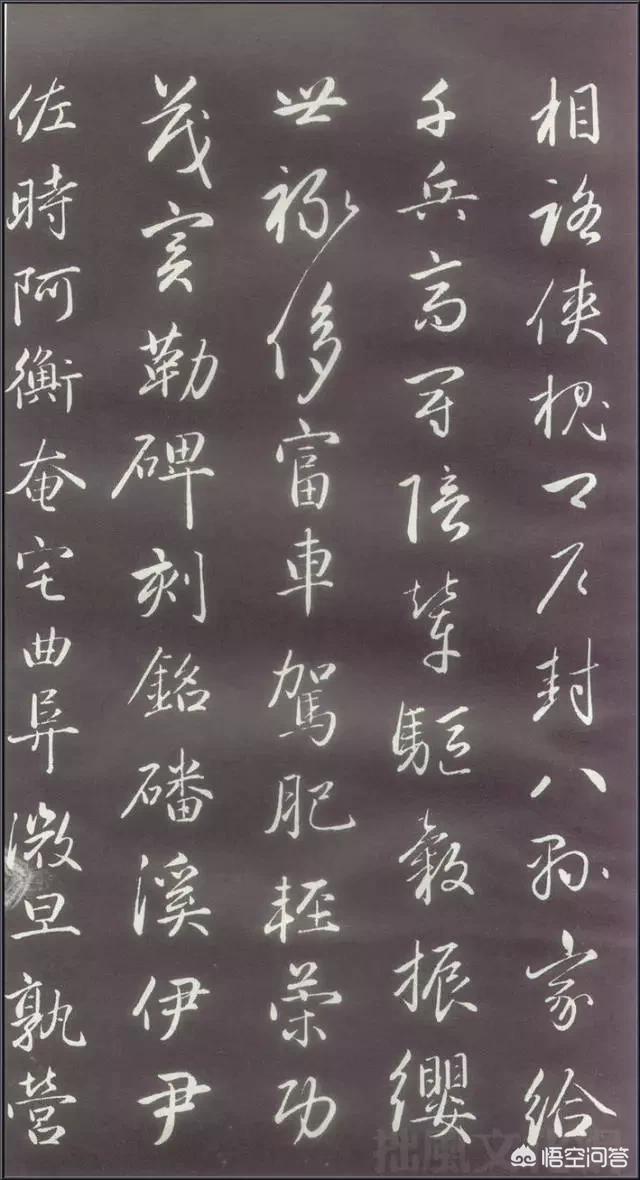 相路俠槐卿戶封八縣家給
千兵高冠陪輦驅轂振纓
世祿侈富車駕肥輕策功
茂實勒碑刻銘磻溪伊尹
佐時阿衡奄宅曲阜微旦孰營
拙風文
悟空问答